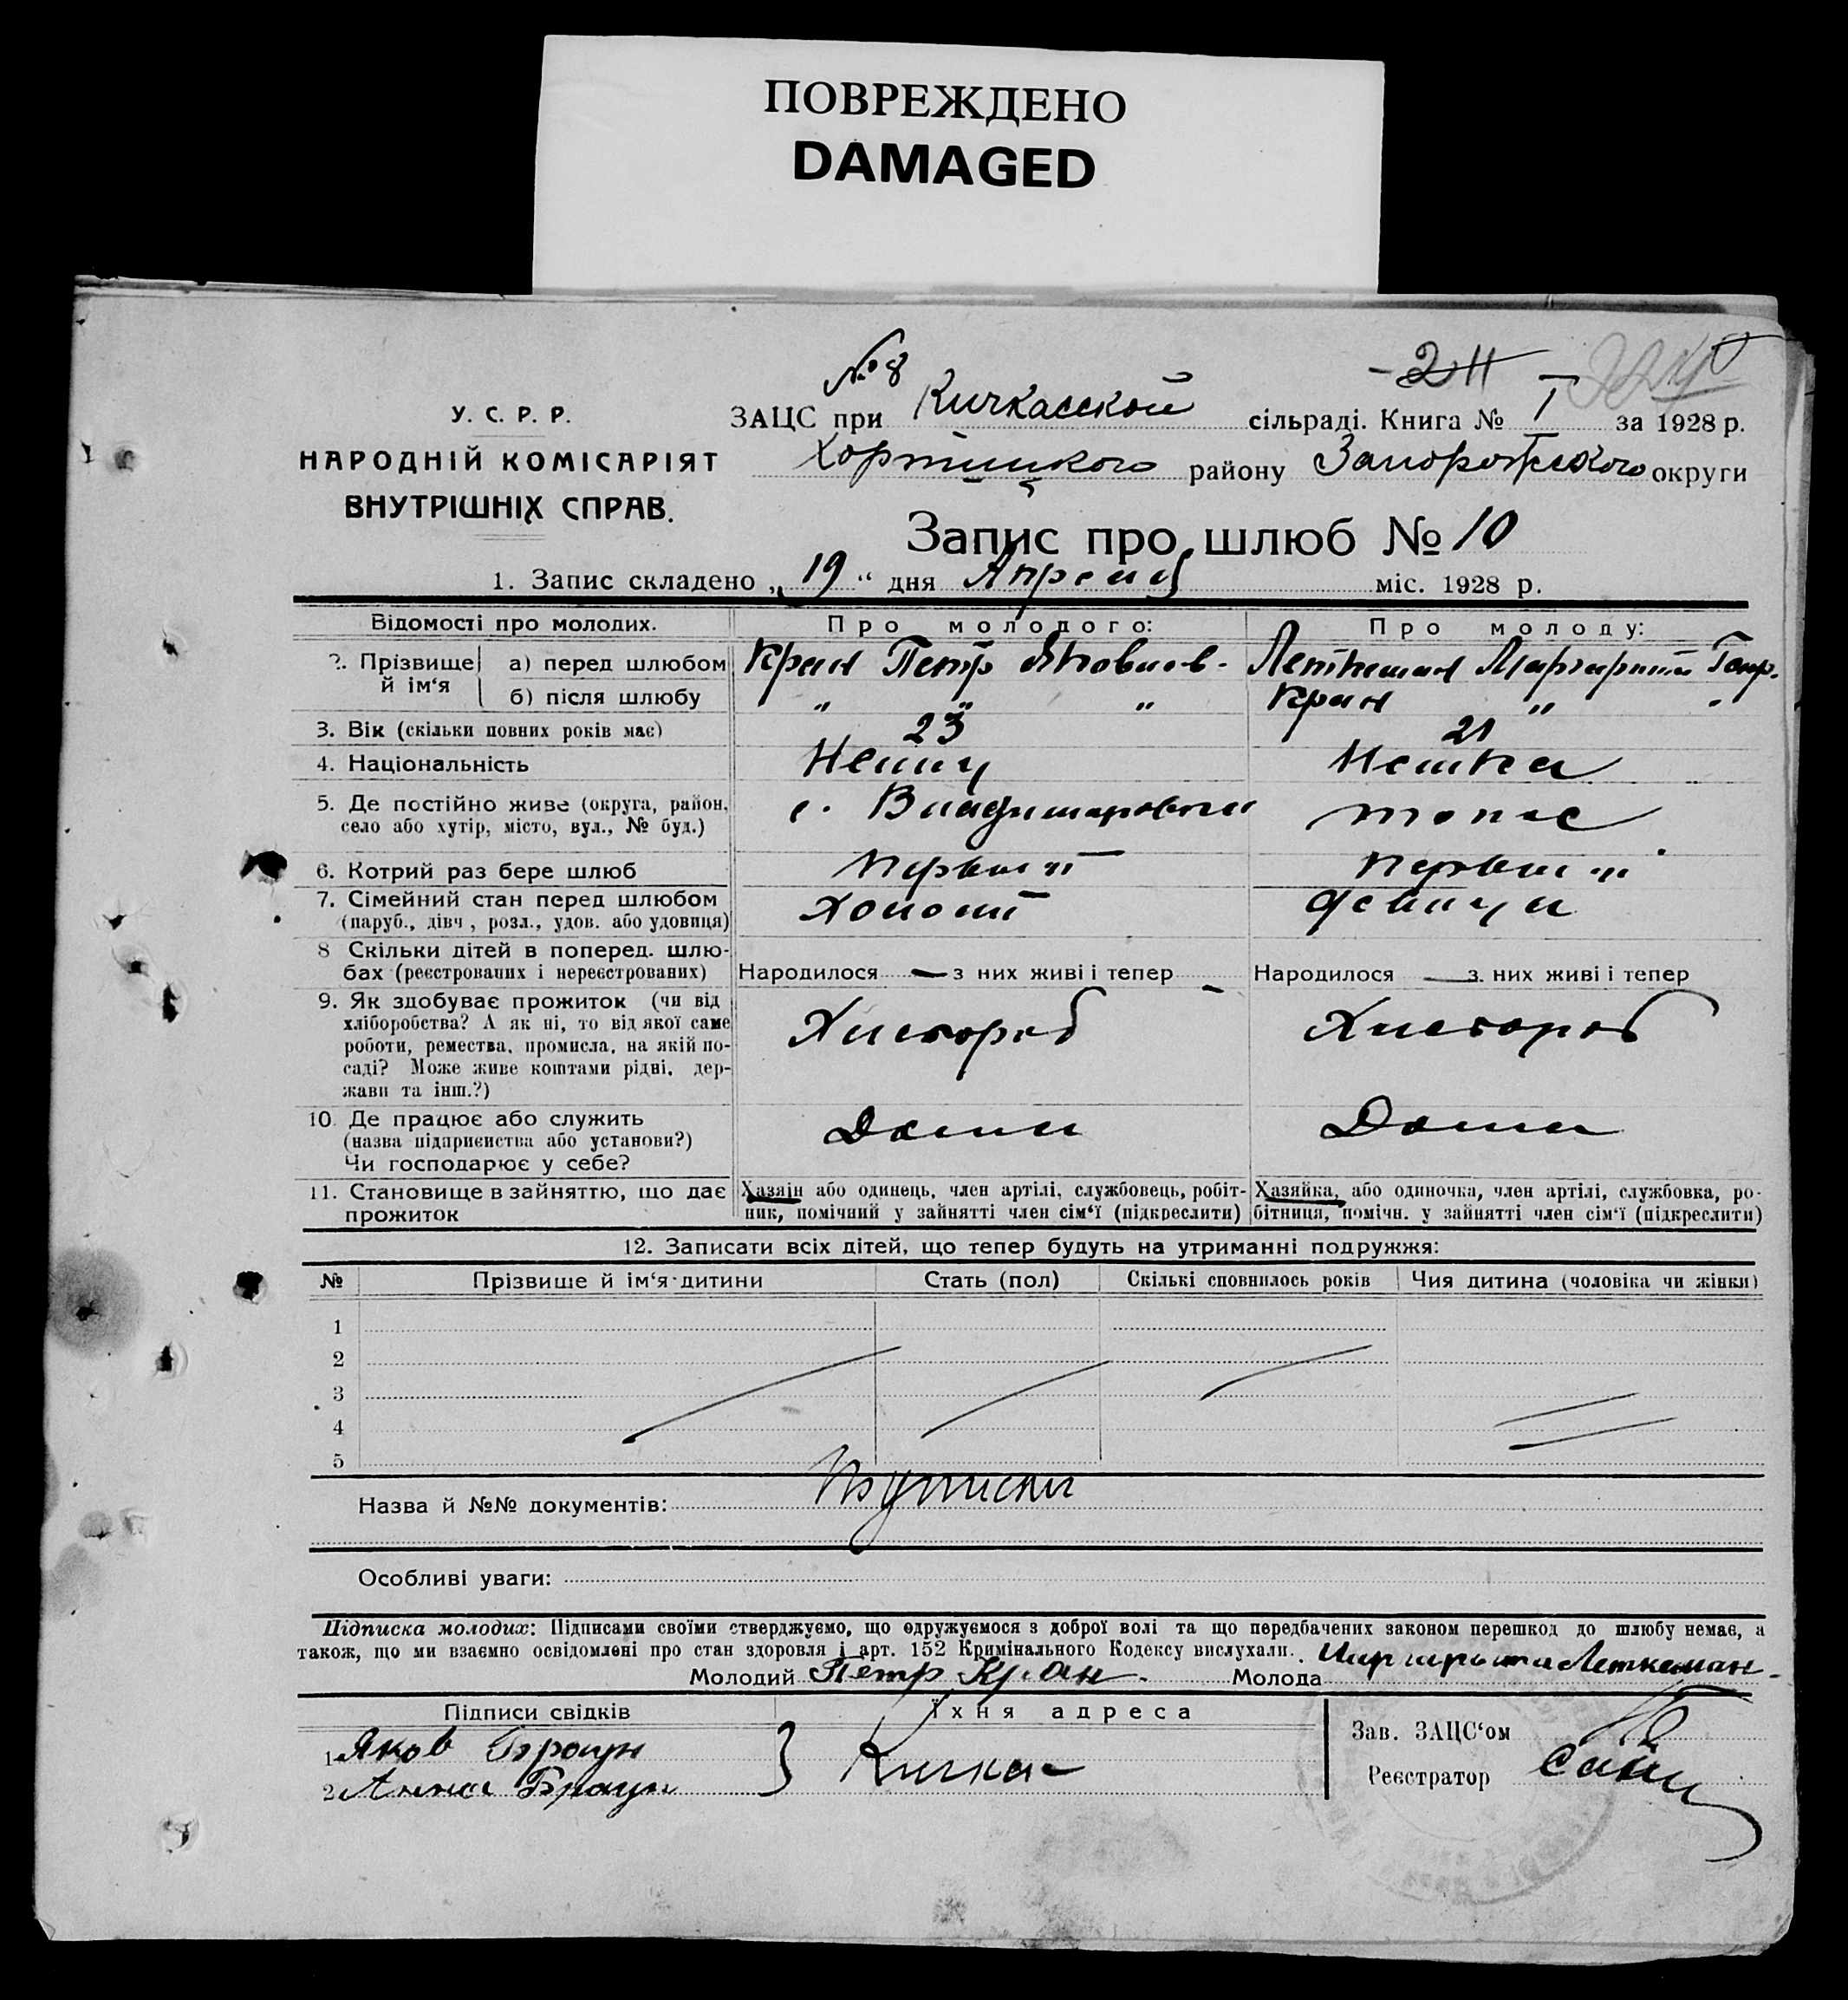 ПОВРЕЖДЕНО
DAMAGED
№ 8
У. С. Р. Р.
НАРОДНІЙ КОМІСАРІЯТ
ВНУТРІШНІХ СПРАВ.
ЗАЦС при Кичкасской сільраді. Книга № I за 1928 р.
Хортицкого району Запорожского округи
Запис про шлюб № 10
1. Запис складено „19“ дня Апреля міс. 1928 р.
Відомості про молодих. Про молодого: Про молоду:
2. Прізвище й ім‘я а) перед шлюбом Кран Петр Яковлев- Леткеман Маргарита Генр.
б) після шлюбу " " " Кран " "
3. Вік (скільки повних років має) 23 21
4. Національність Немец Немка
5. Де постійно живе (округа, район, село або хутір, місто, вул., № буд.) с. Владимировка тоже
6. Котрий раз бере шлюб первый первый
7. Сімейний стан перед шлюбом Холост девица
(паруб., дівч., розл., удов. або удовиця)
8 Скільки дітей в поперед. шлю-
бах (реєстрованих і нереєстрованих) Народилося — з них живі і тепер - Народилося — з них живі і тепер
9. Як здобуває прожиток (чи від
хліборобства? А як ні, то від якої саме
роботи, ремества, промисла, на якій по- Хлебороб Хлебороб
саді? Може живе коштами рідні, дер-
жави та інш.?)
10. Де працює або служить
(назва підприємства або установи?) Дома Дома
Чи господарює у себе?
11. Становище в зайняттю, що дає Хазяїн або одинець, член артілі, службовець, робіт- Хазяйка, або одиночка, член артілі, службовка, ро-
прожиток ник, помічний у зайнятті член сім‘ї (підкреслити) бітниця, помічн. у зайнятті член сім‘ї (підкреслити)
12. Записати всіх дітей, що тепер будуть на утриманні подружжя:
№ Прізвище й ім‘я дитини Стать (пол) Скількі сповнилось років Чия дитина (чоловіка чи жінки)
1
2
3
4
5
Назва й №№ документів:
Особливі уваги:
Підписка молодих: Підписами своїми стверджуємо, що одружуємося з доброї волі та що передбачених законом перешкод до шлюбу немає, а
також, що ми взаємно освідомлені про стан здоровля і арт. 152 Кримінального Кодексу вислухали.
Молодий Петр Кран Молода Маргарита Леткеман
Підписи свідків Їхня адреса
1 Яков Браун } Кичкас
2 Анна Браун
Зав. ЗАЦС‘ом
Реєстратор